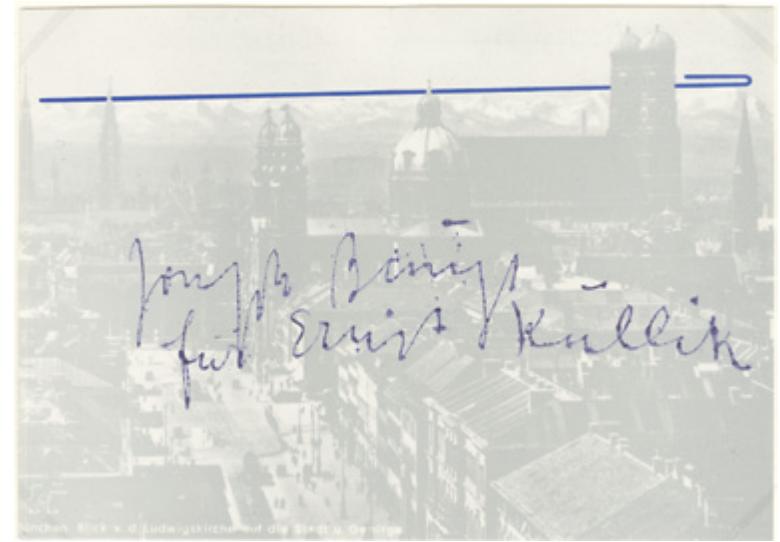 Joseph Beuys
für Ernst Küllik
München. Blick v. d. Ludwigskirche auf die Stadt u. Gebirge